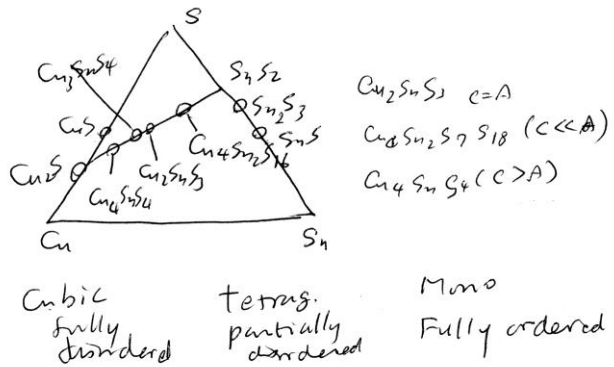 S
Cu3SnS4
SnS2
Sn2S3
CuS
SnS
Cu4Sn2S16
Cu2S
Cu2SnS3
Cu4SnS4
Cu
Sn
Cu2SnS3 C=A
Sn2S7 S18 (C<<A)
Cu4SnS4 (C>A)
Cubic
fully
disordered
tetrag.
partially
disordered
Mono
Fully ordered